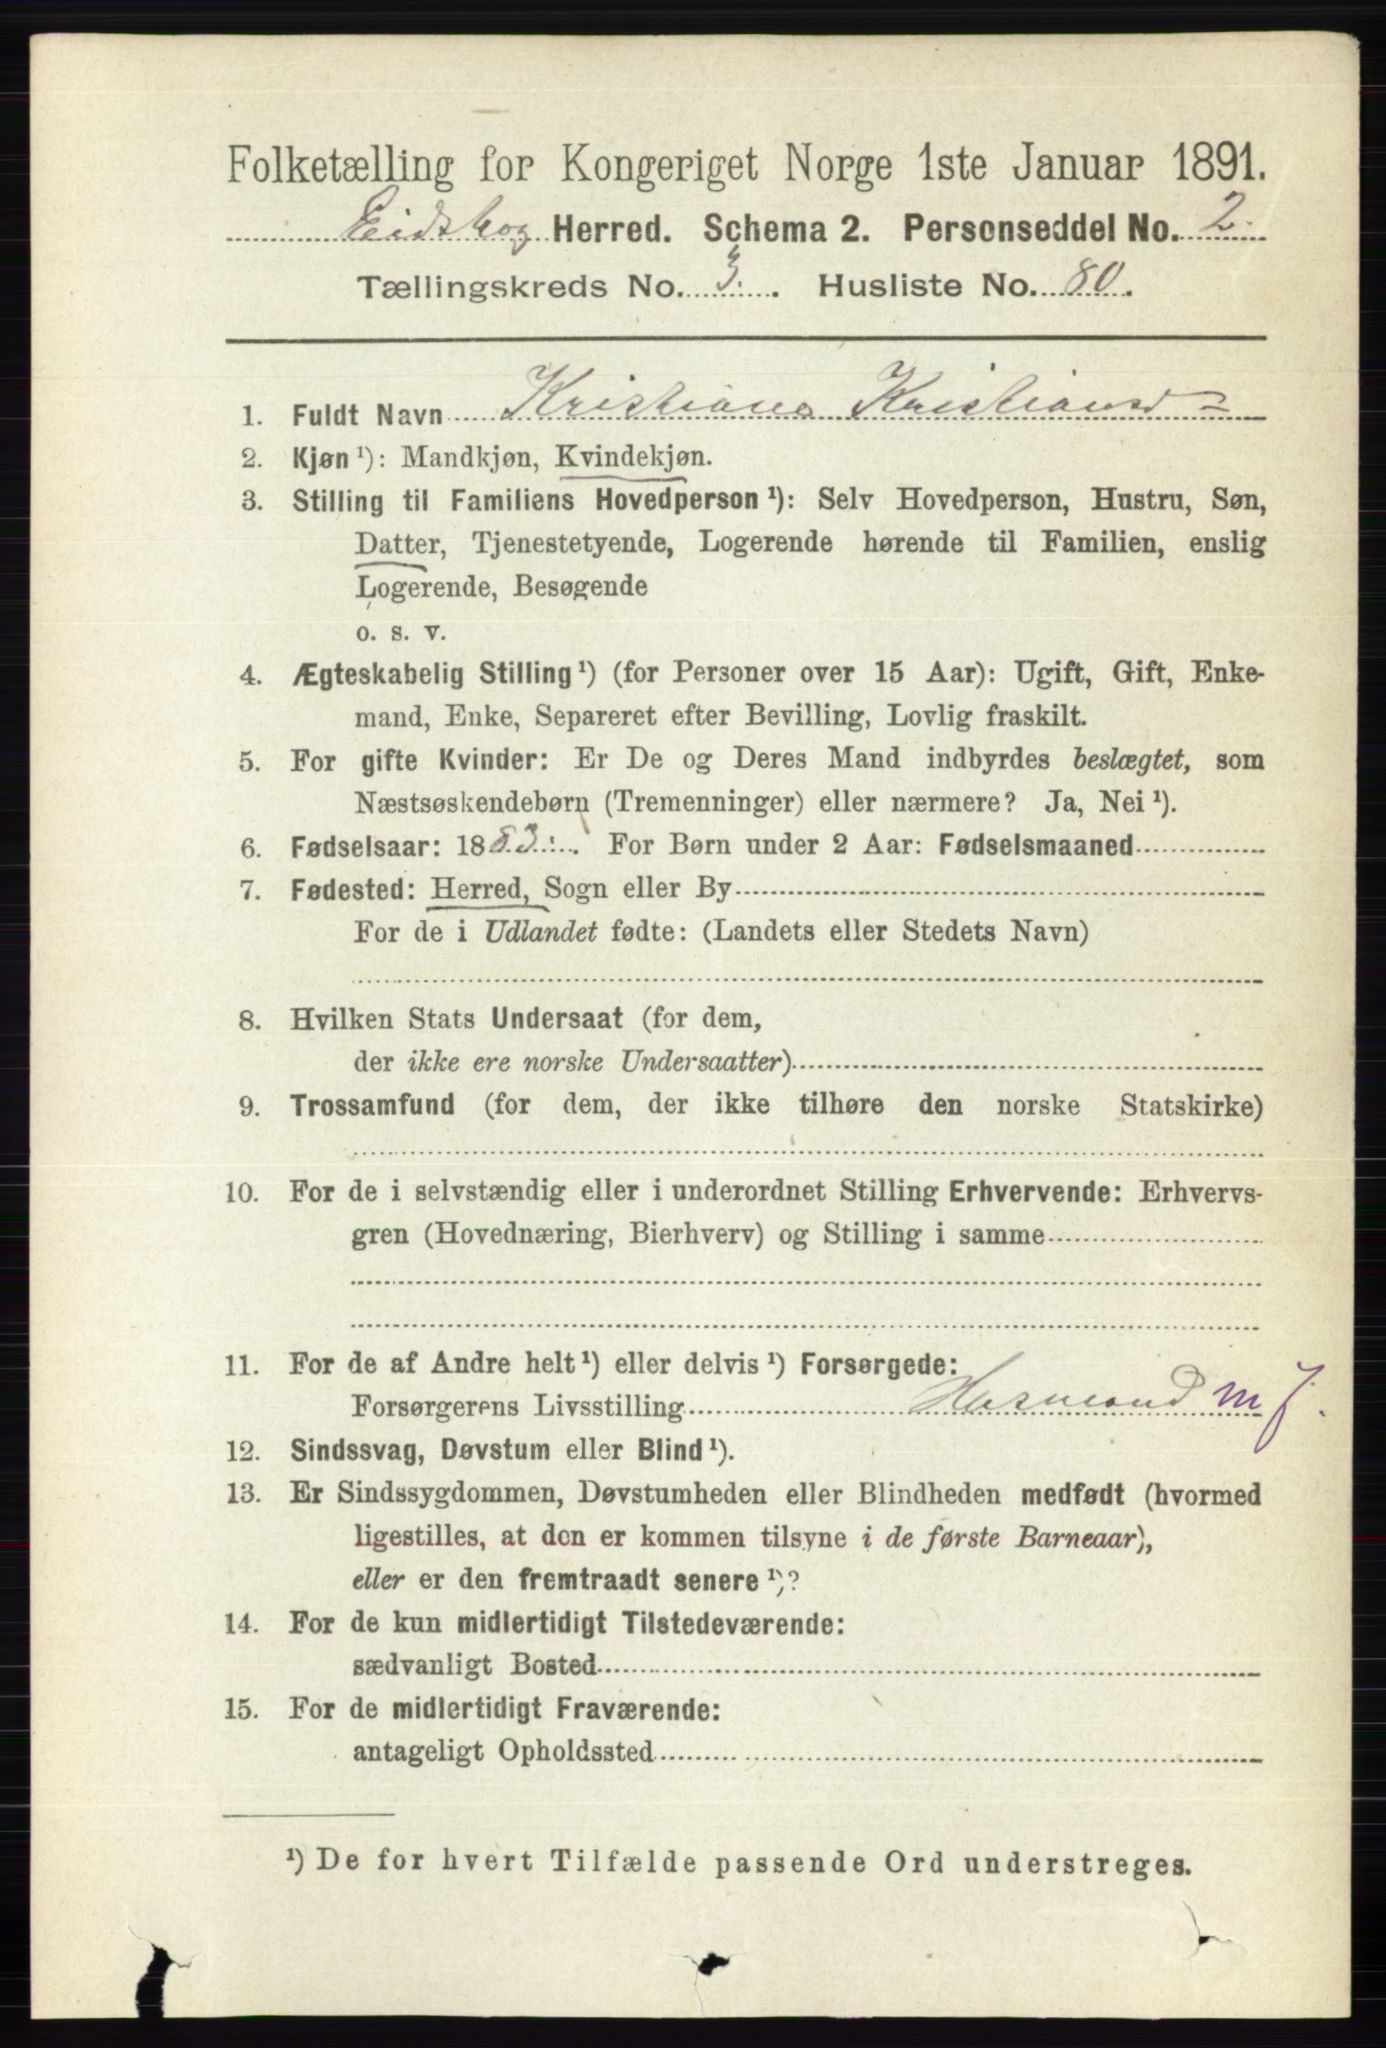 Folketælling for Kongeriget Norge 1ste Januar 1891.
Eidskog Herred. Schema 2. Personseddel No. 2.
Tællingskreds No. 3. Husliste No. 80.
1. Fuldt Navn Kristiana Kristiansd
2. Kjøn ¹): Mandkjøn, Kvindekjøn.
3. Stilling til Familiens Hovedperson ¹): Selv Hovedperson, Hustru, Søn,
Datter, Tjenestetyende, Logerende hørende til Familien, enslig
Logerende, Besøgende
o. s. v.
4. Ægteskabelig Stilling ¹) (for Personer over 15 Aar): Ugift, Gift, Enke-
mand, Enke, Separeret efter Bevilling, Lovlig fraskilt.
5. For gifte Kvinder: Er De og Deres Mand indbyrdes beslægtet, som
Næstsøskendebørn (Tremenninger) eller nærmere? Ja, Nei ¹).
6. Fødselsaar: 1883. For Børn under 2 Aar: Fødselsmaaned
7. Fødested: Herred, Sogn eller By
For de i Udlandet fødte: (Landets eller Stedets Navn)
8. Hvilken Stats Undersaat (for dem,
der ikke ere norske Undersaatter)
9. Trossamfund (for dem, der ikke tilhøre den norske Statskirke)
10. For de i selvstændig eller i underordnet Stilling Erhvervende: Erhvervs-
gren (Hovednæring, Bierhverv) og Stilling i samme
11. For de af Andre helt ¹) eller delvis ¹) Forsørgede:
Forsørgerens Livsstilling Husmand m J.
12. Sindssvag, Døvstum eller Blind ¹).
13. Er Sindssygdommen, Døvstumheden eller Blindheden medfødt (hvormed
ligestilles, at den er kommen tilsyne i de første Barneaar),
eller er den fremtraadt senere ¹)?
14. For de kun midlertidigt Tilstedeværende:
sædvanligt Bosted
15. For de midlertidigt Fraværende:
antageligt Opholdssted
¹) De for hvert Tilfælde passende Ord understreges.